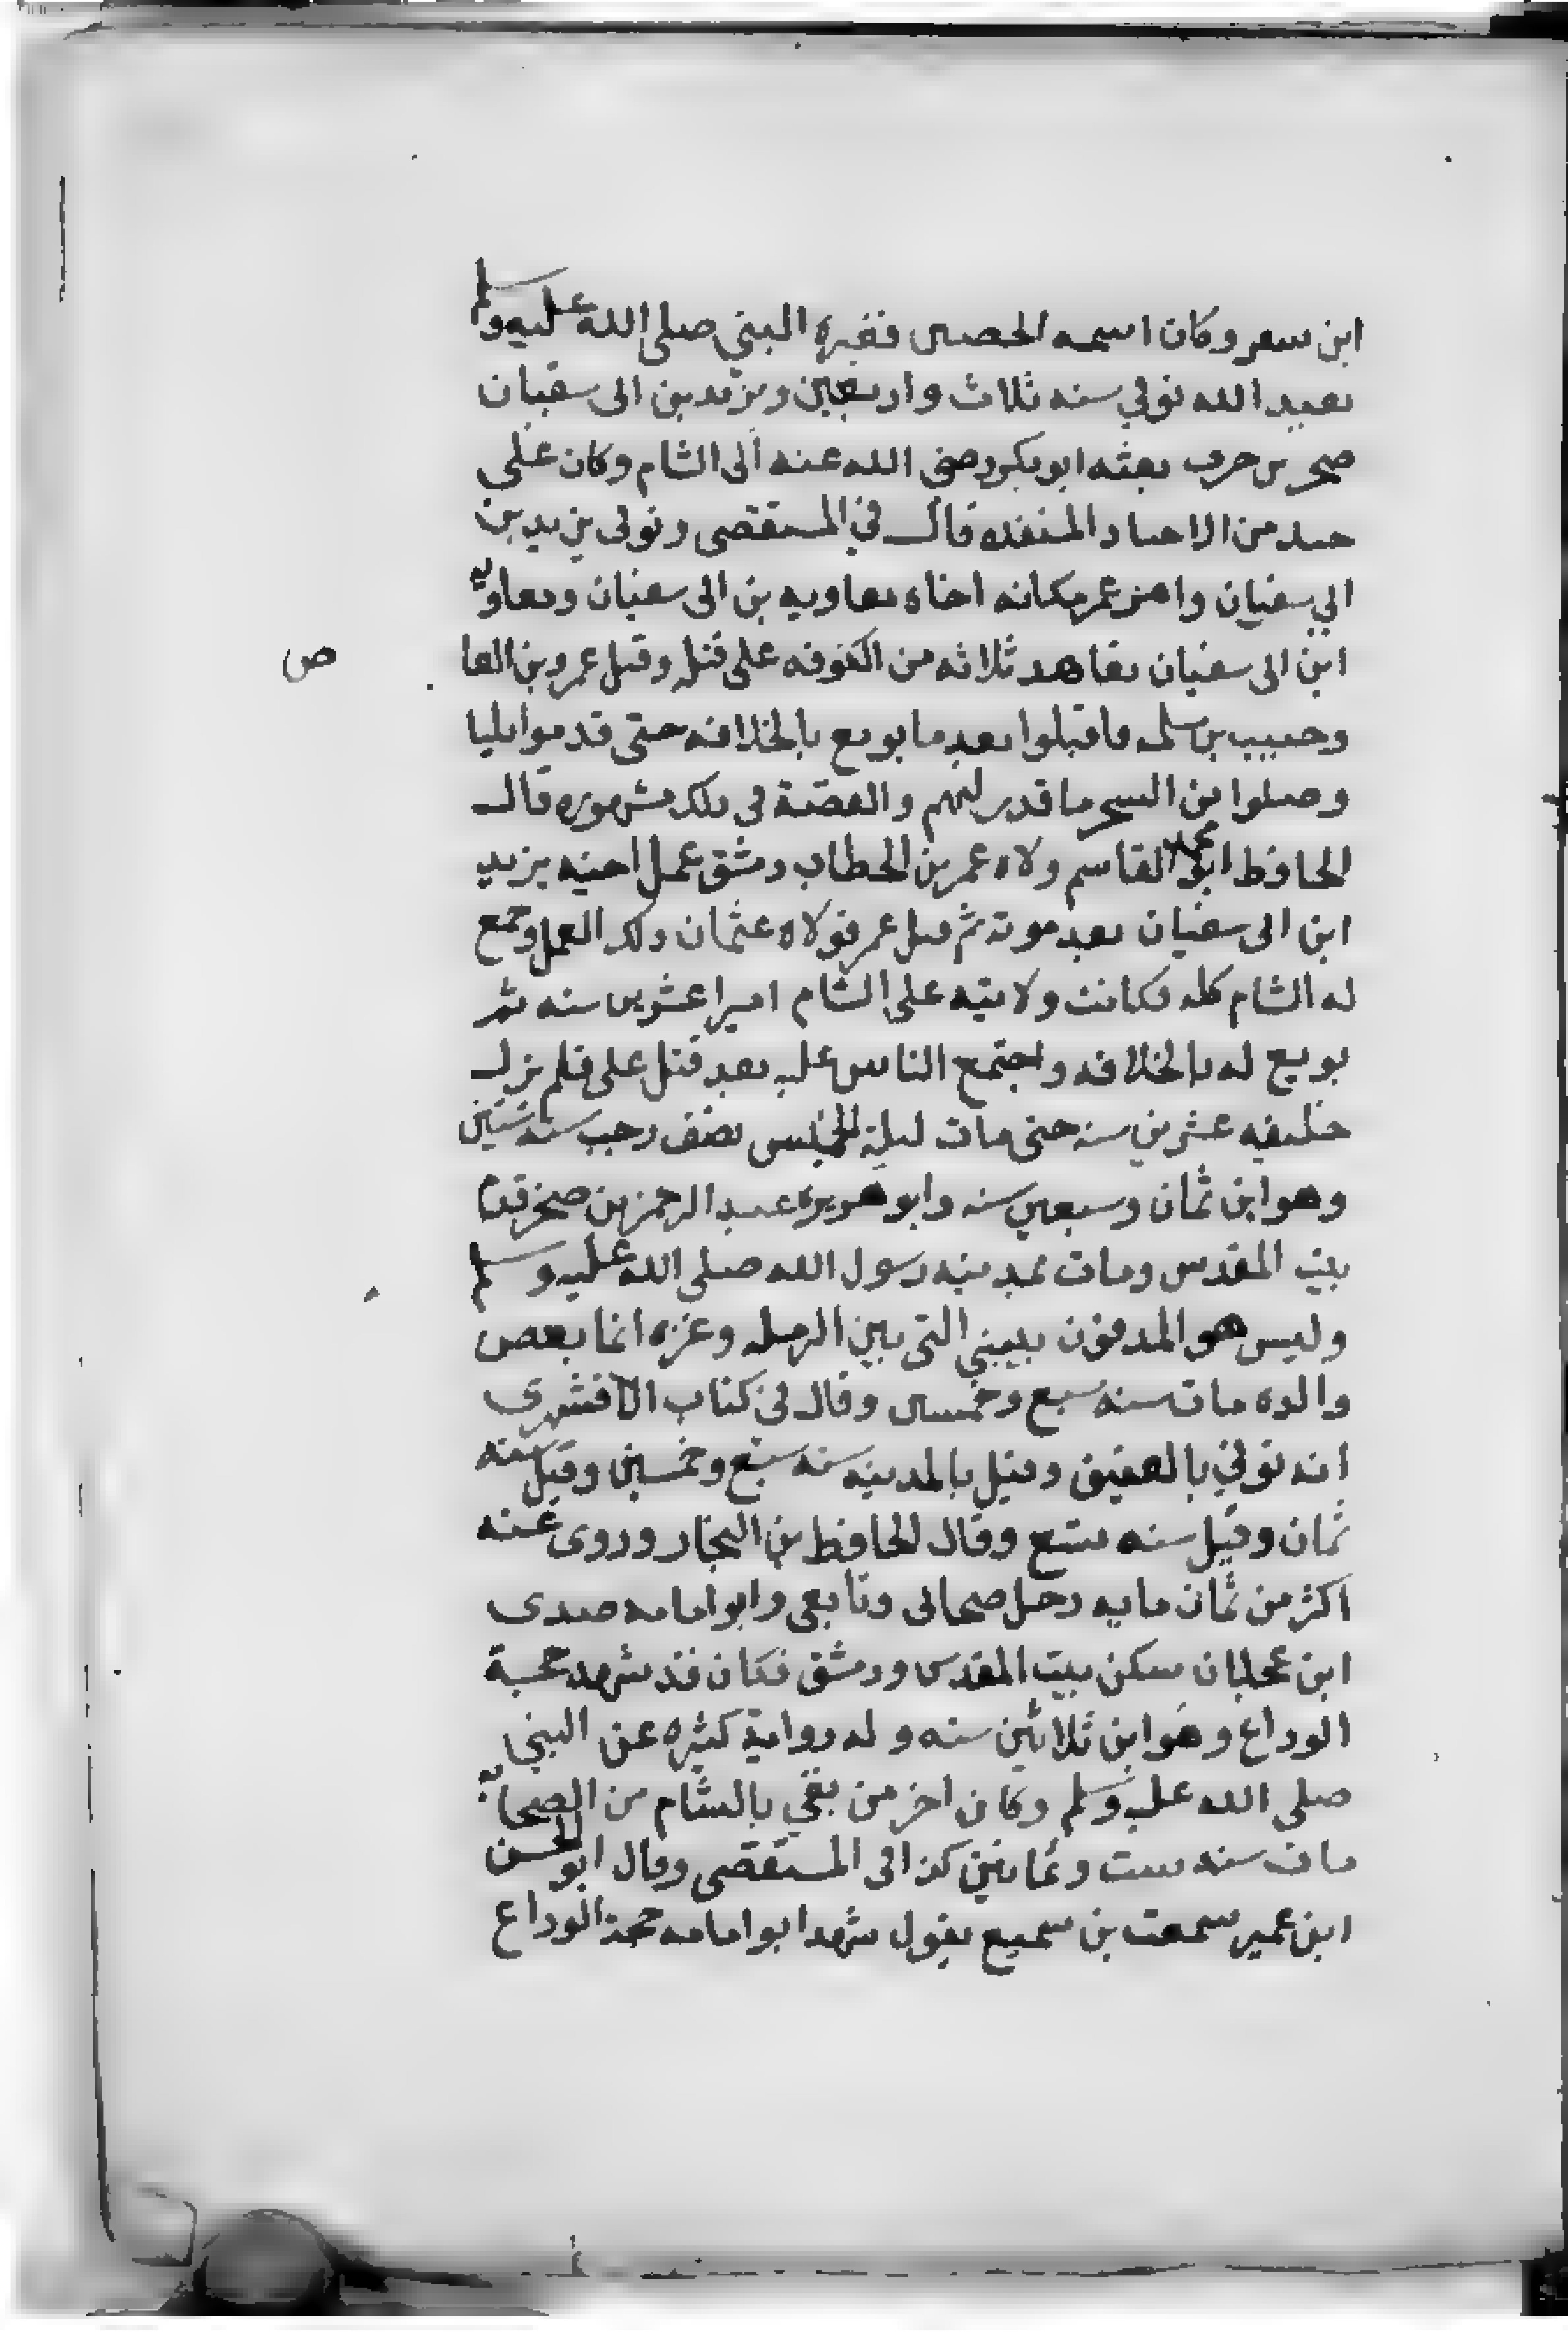 ابن سعر وكان اسمه الحصين فغيره النبي صلى الله عليه وسلم
بعبد الله توفي سنه ثلاث واربعين ويزيد بن ابي سفيان
صخر بن حرب بعثه ابو بكر رضي الله عنه الى الشام وكان على
جند من الاجناد المنفذه قال في المستقصى وتولى يزيد بن
ابي سفيان وامر عمر مكانه اخاه معاويه بن ابي سفيان ومعاويه
ابن ابي سفيان تعاهد ثلاثه من الكوفه على قتله وقتل عمرو بن العا
ص
وحبيب بن سلمه فاقبلوا بعد ما بويع بالخلافه حتى قدموا ايليا
وصلوا من السحر ما قدر لهم والقصة في ذلك مشهوره قال
الحافظ ابو محمد القاسم ولاه عمر بن الخطاب دمشق عمل اخيه يزيد
ابن ابي سفيان بعد موته ثم قتل عمر فولاه عثمان ذلك العمل وجمع
له الشام كله فكانت ولايته على الشام اميرا عشرين سنه ثم
بويع له بالخلافه واجتمع الناس عليه بعد قتل علي فلم يزل
خليفه عشرين سنه حتى مات ليلة الخميس نصف رجب سنه ستين
وهو ابن ثمان وسبعين سنه وابو هريره عبد الرحمن بن صخر قدم
بيت المقدس ومات بمدينه رسول الله صلى الله عليه وسلم
وليس هو المدفون بيبني التي بين الرمله وغزه انما بعض
والده مات سنه سبع وخمسين وقال في كتاب الاقشهري
انه توفي بالعقيق وقيل بالمدينه سنه سبع وخمسين وقيل سنه
ثمان وقيل سنه تسع وقال الحافظ بن النجار وروى عنه
اكثر من ثمان مايه رجل صحابي وتابعي وابو امامه صدى
ابن عجلان سكن بيت المقدس ودمشق فكان قد شهد حجة
الوداع وهو ابن ثلاثين سنه وله رواية كثيره عن النبي
صلى الله عليه وسلم وكان اخر من بقي بالشام من الصحابه
مات سنه ست وثمانين كذا في المستقصى وقال ابو الحسن
ابن عمير سمعت بن سميع يقول شهد ابو امامه حجة الوداع